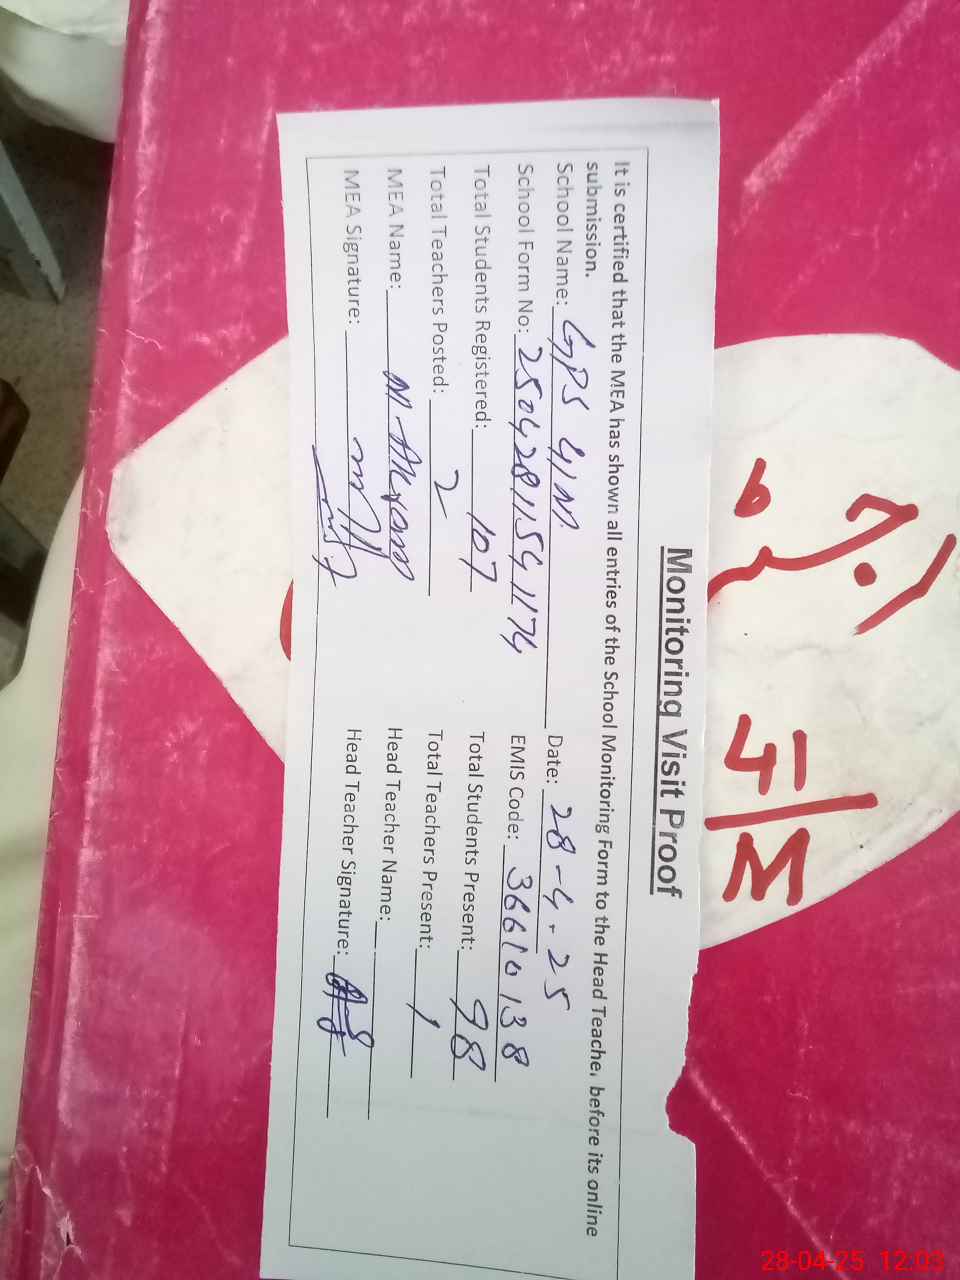 Monitoring Visit Proof
It is certified that the MEA has shown all entries of the School Monitoring Form to the Head Teache. before its online
submission.
School Name: GPS 4/M. Date: 28-4-25
School Form No: 25042811541174 EMIS Code: 36610138
Total Students Registered: 107 Total Students Present: 98
Total Teachers Posted: 2 Total Teachers Present: 1
MEA Name: M. Akram Head Teacher Name:
MEA Signature: Head Teacher Signature:
4/M
28-04-25 12:03